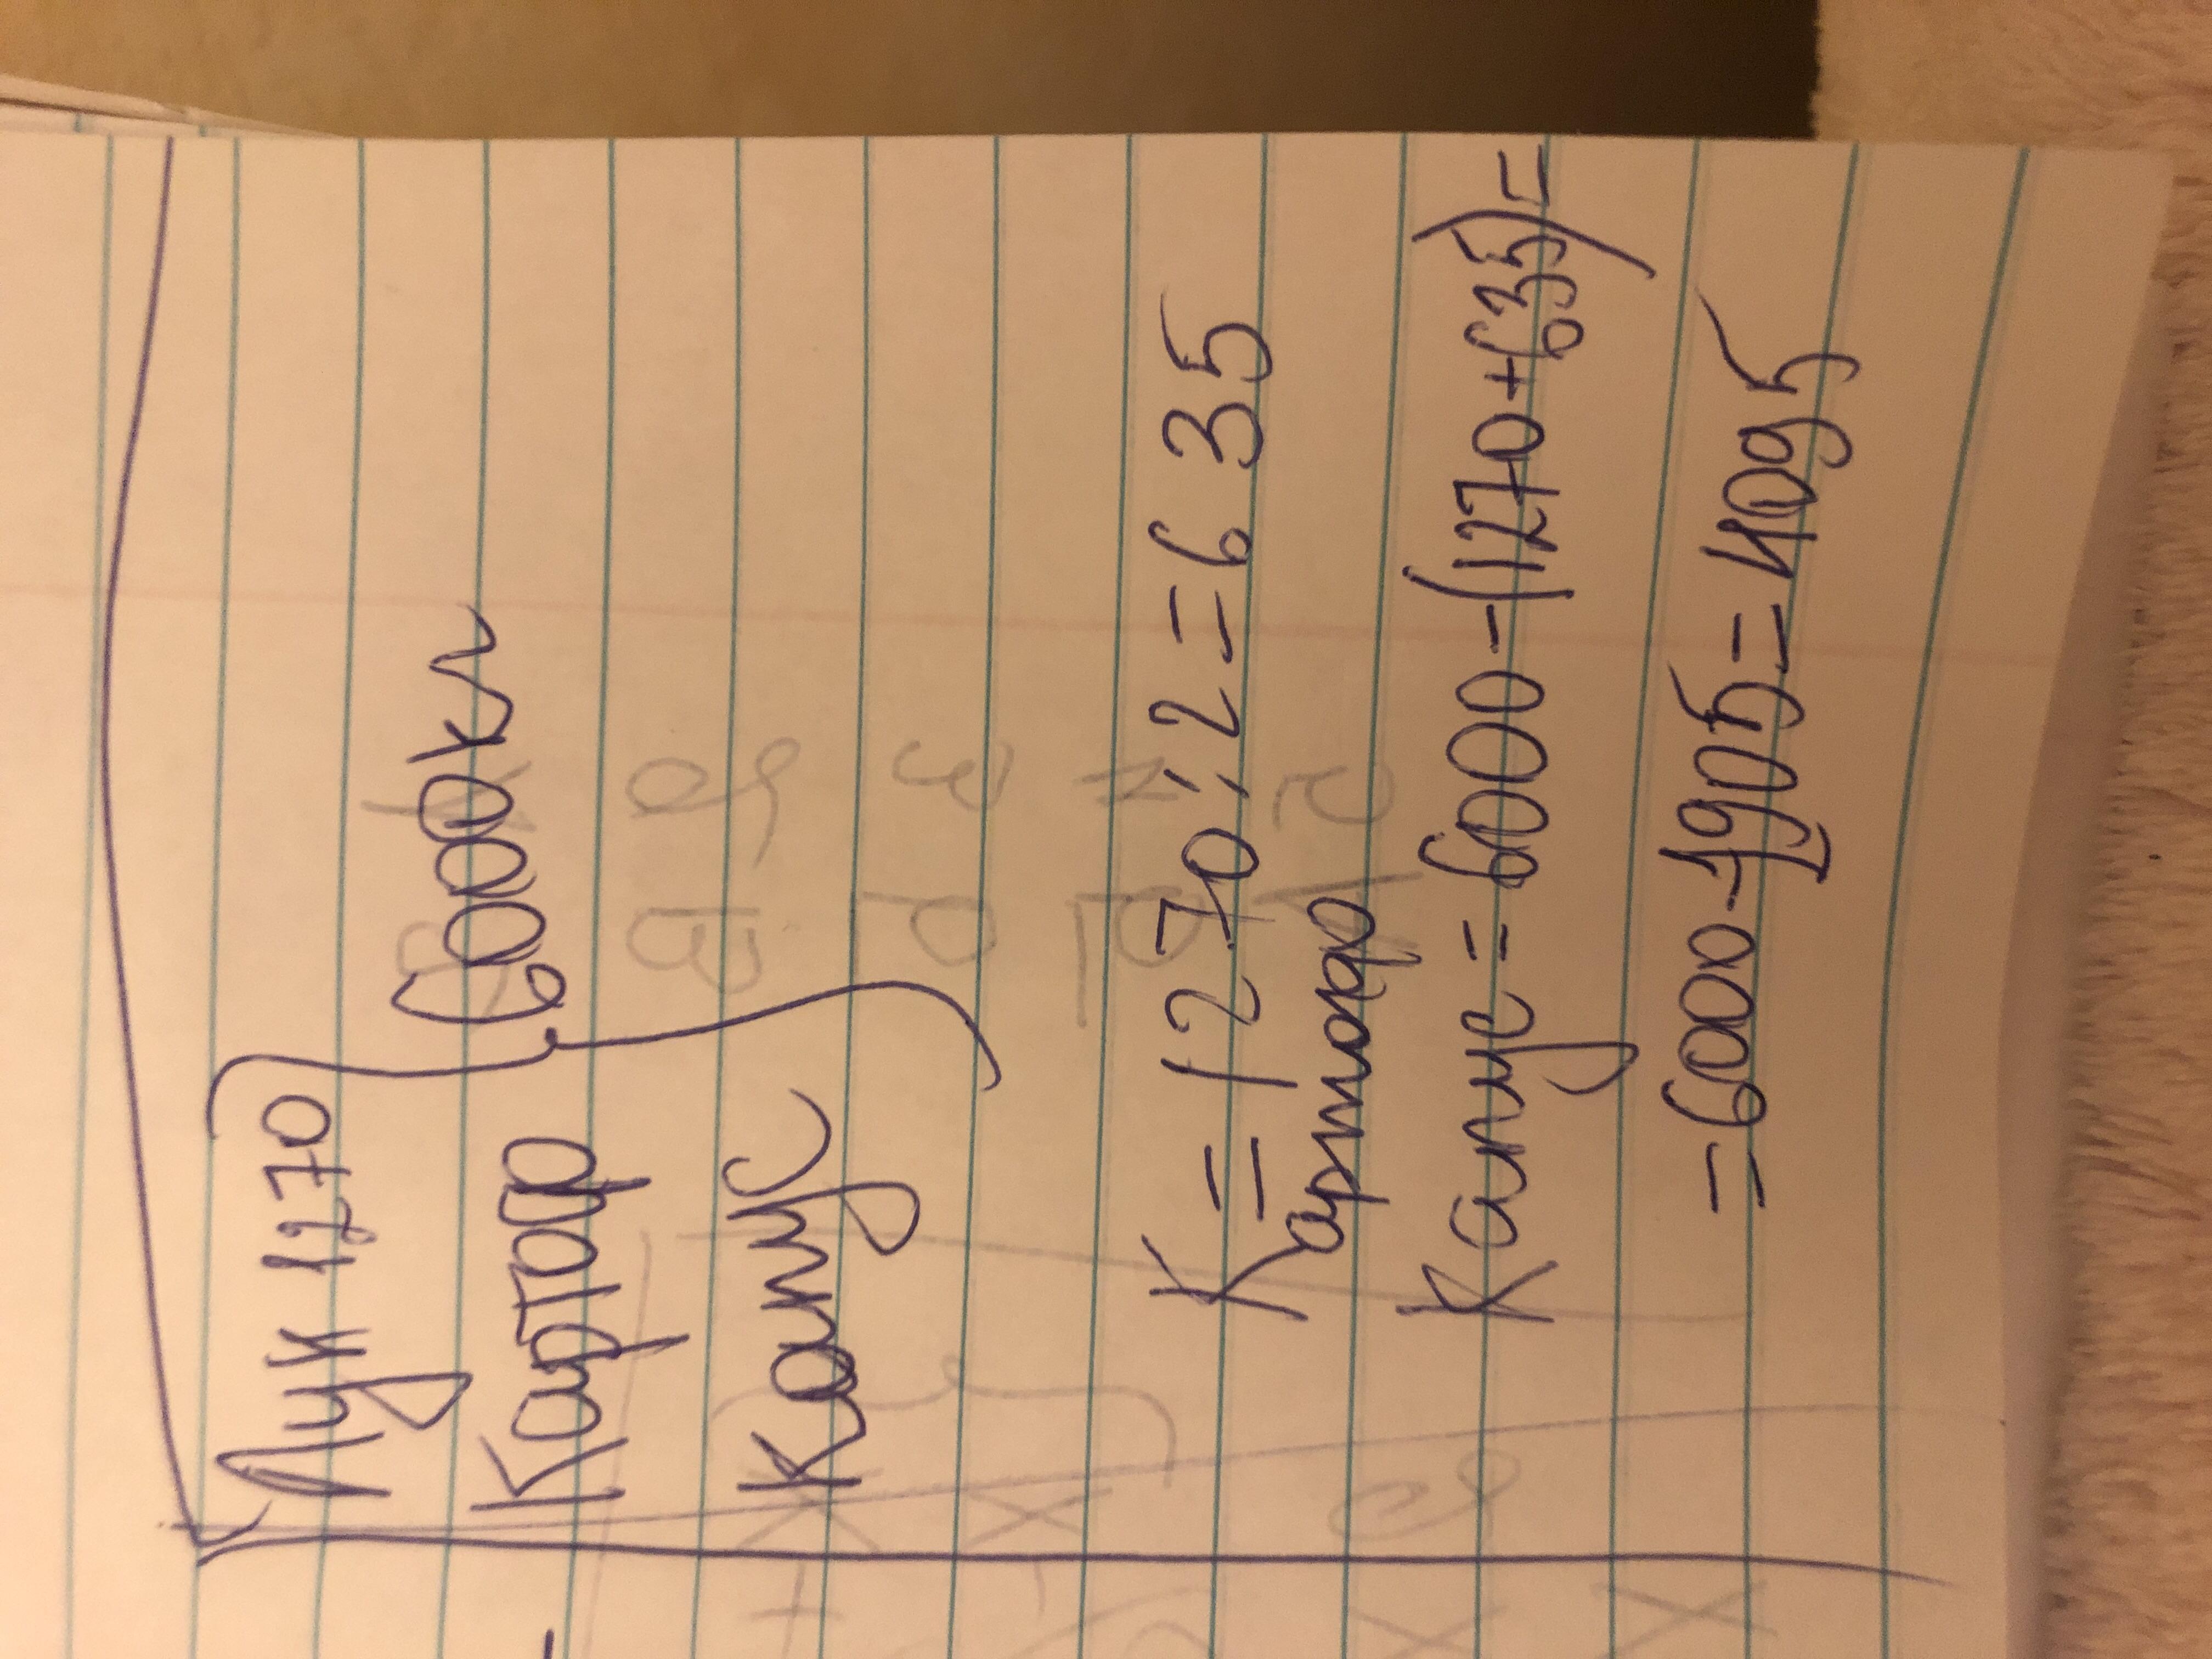 Лук 1270
6000 кг
Картоф
Капус
К = 1270 : 2 = 635
артофо
Капус = 6000 - (1270 + 635) =
= 6000 - 1905 = 4095